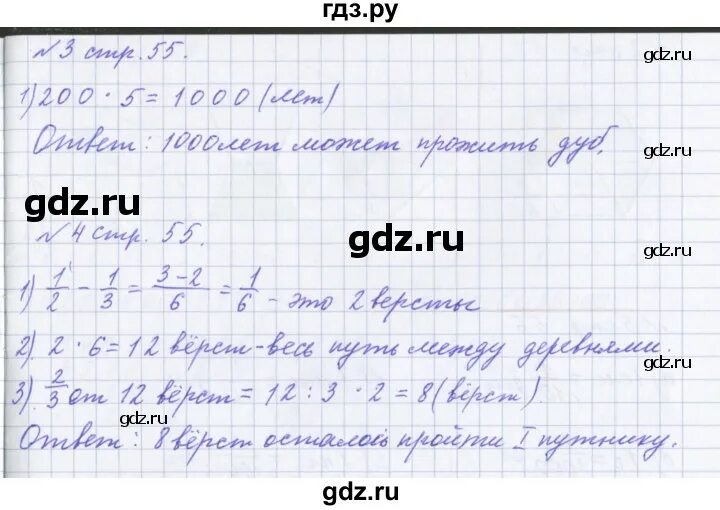 гдз.ру
№3 стр. 55.
gdz.ru
1) 200 · 5 = 1000 (лет)
Ответ: 1000 лет может прожить дуб.
gdz.ru
gdz.ru
№4 стр. 55.
gdz.ru
gdz.ru
1) 1/2 - 1/3 = (3-2)/6 = 1/6 - это 2 версты
2). 2 · 6 = 12 вёрст - весь путь между деревнями.
3). 2/3 от 12 вёрст = 12 : 3 · 2 = 8 (вёрст)
gdz.ru
gdz.ru
Ответ: 8 вёрст осталось пройти I путнику.
gdz.ru